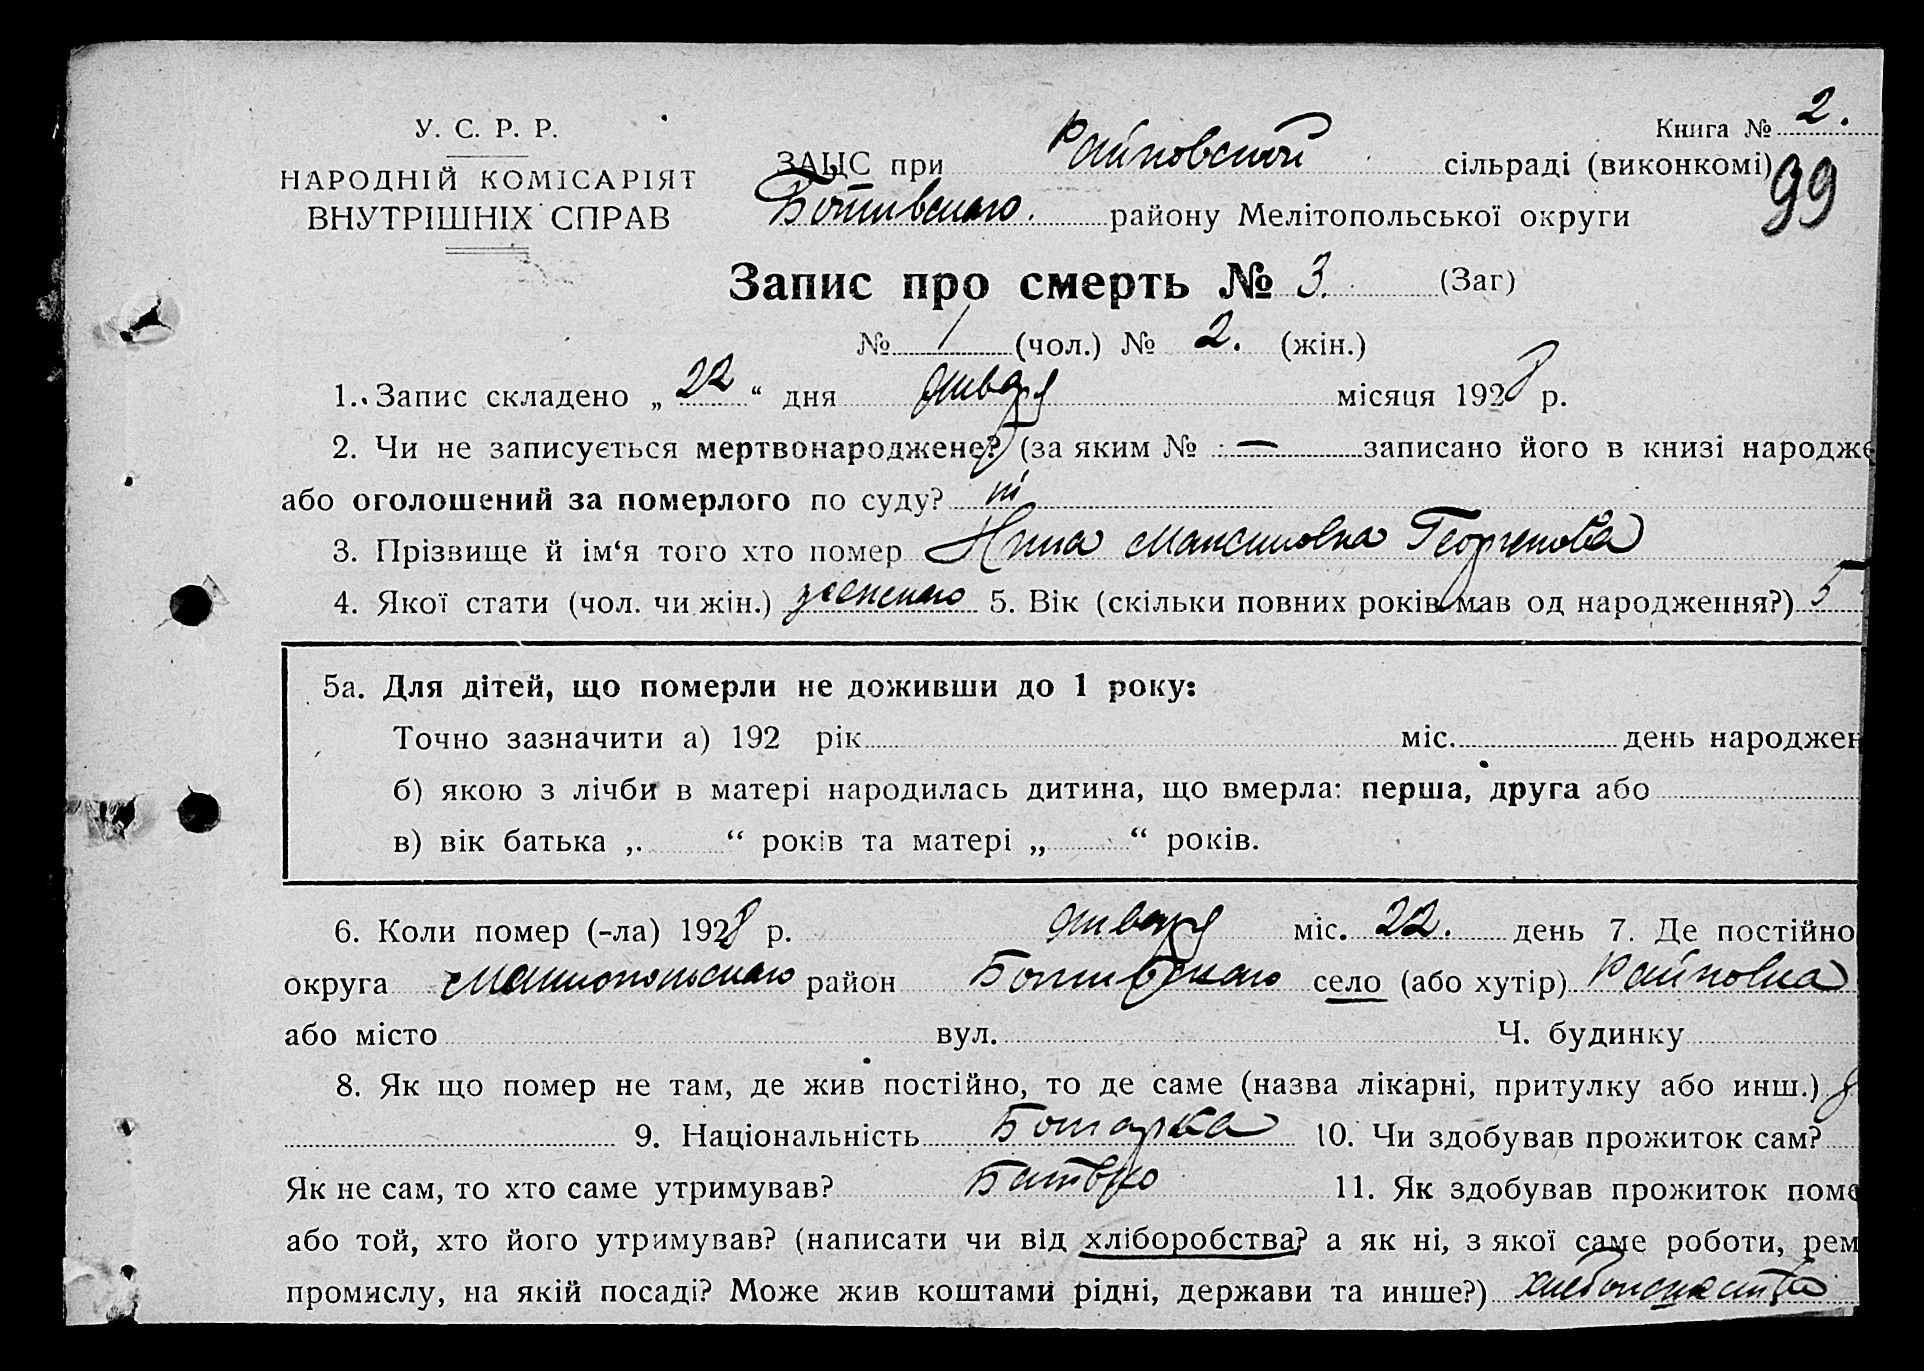 У. С. Р. Р.
НАРОДНІЙ КОМІСАРІЯТ
ВНУТРІШНІХ СПРАВ
Книга № 2.
ЗАЦС при Райновской сільраді (виконкомі)
99
Ботивского району Мелітопольської округи
Запис про смерть № 3. (Заг)
№ / (чол.) № 2. (жін.)
1. Запис складено „ 22 “ дня января місяця 1928 р.
2. Чи не записується мертвонароджене? (за яким № — записано його в книзі народже
або оголошений за померлого по суду? ні
3. Прізвище й ім‘я того хто помер Нина Максимовна Георгенова
4. Якої стати (чол. чи жін.) женского 5. Вік (скільки повних років мав од народження?) 5
5а. Для дітей, що померли не доживши до 1 року:
Точно зазначити а) 192 рік міс. день народжен
б) якою з лічби в матері народилась дитина, що вмерла: перша, друга або
в) вік батька „ “ років та матері „ “ років.
6. Коли помер (-ла) 1928 р. января міс. 22. день 7. Де постійно
округа район Ботивского село (або хутір) Райновка
або місто вул. Ч. будинку
8. Як що помер не там, де жив постійно, то де саме (назва лікарні, притулку або инш.)
9. Національність Болгарка 10. Чи здобував прожиток сам?
Як не сам, то хто саме утримував? Батько 11. Як здобував прожиток поме
або той, хто його утримував? (написати чи від хліборобства? а як ні, з якої саме роботи, рем
промислу, на якій посаді? Може жив коштами рідні, держави та инше?)